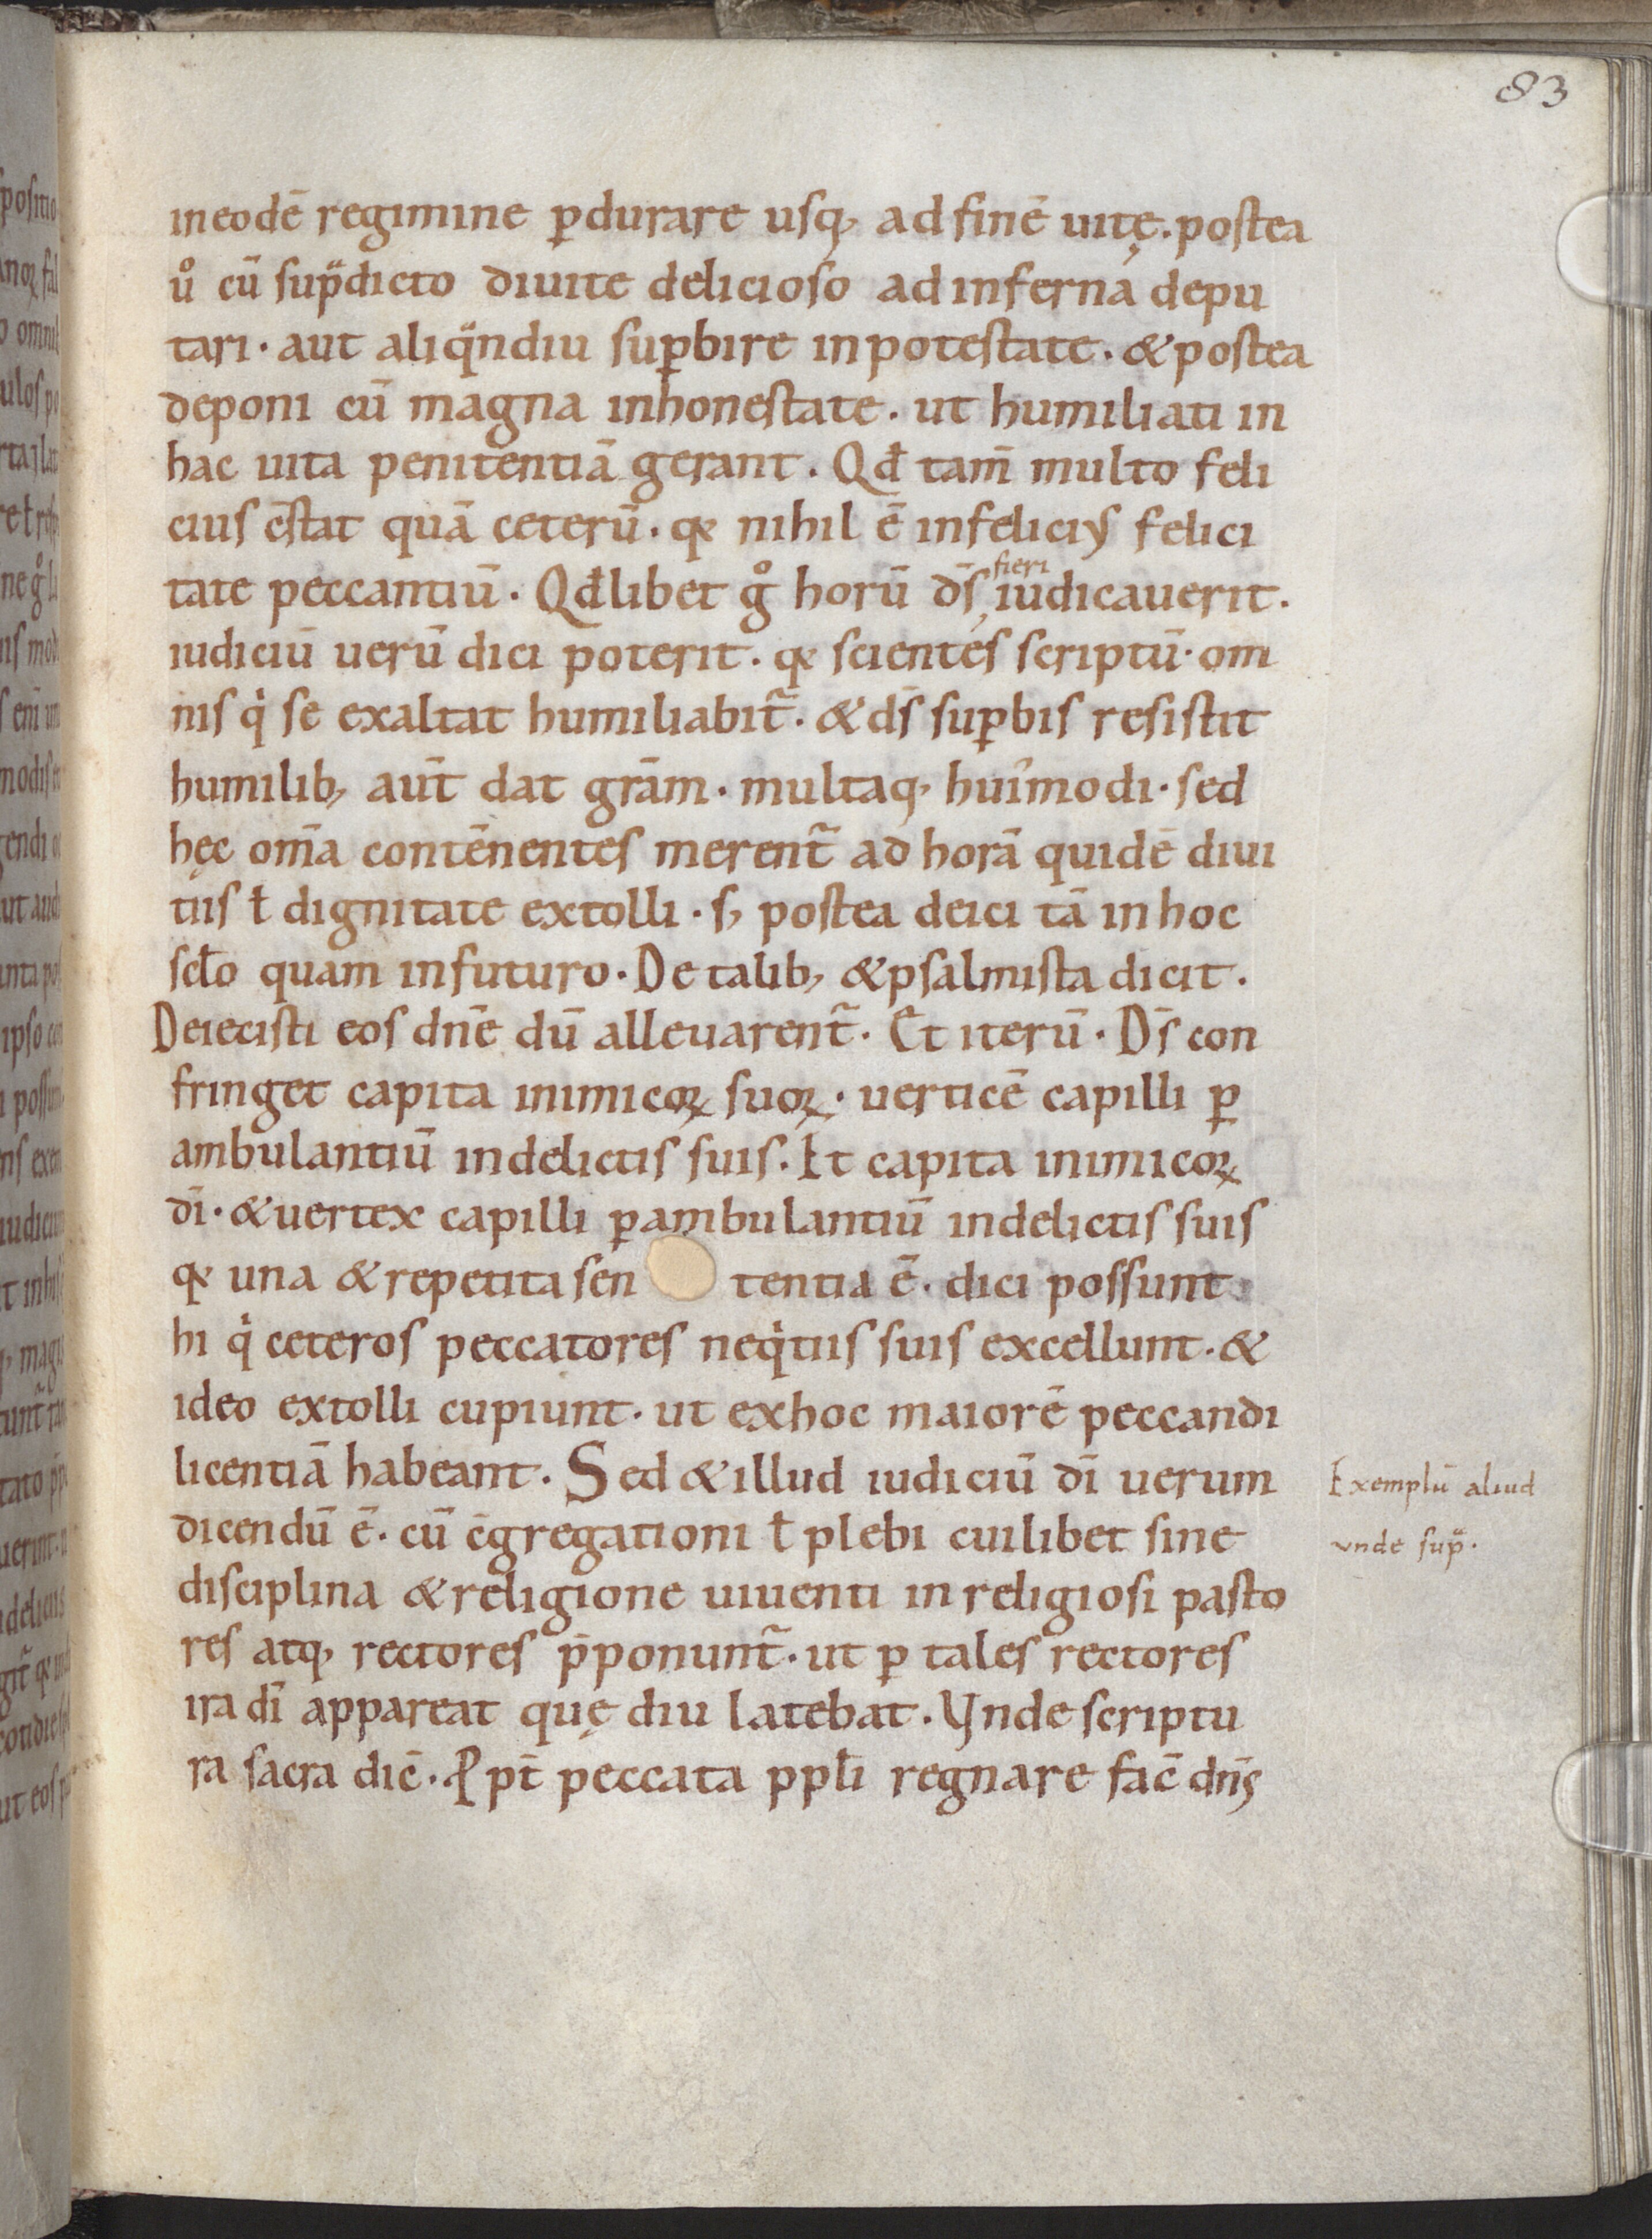 83
in eodē regimine ꝑdurare usq, ad finē uitę. postea
uͦ cū sup̄dicto diuite delicioso ad inferna depu
tari · aut aliqͣndiu suꝑbire in potestate · & postea
deponi cū magna inhonestate · ut humiliati in
hac uita penitentiā gerant. Qđ tam̄ multo feli
cius c̄stat quā ceterū · qꝫ nihil ē infeliciꝰ felici
tate peccantiū. Qđlibet gͦ horū d̄s, fieri iudicauerit.
iudiciū uerū dici poterit · qꝫ scientes scriptū · om
nis qͥ se exaltat humiliabit̄ · & d̄s suꝑbis resistit
humilib, aut̄ dat grām · multaq, hui᷒modi · sed
hęc om̄a contēnentes merent̄ ad horā quidē diui
tiis ƚ dignitate extolli · s, postea deici tā in hoc
scƚo quam in futuro. De talib, & psalmista dicit.
Deiecisti eos dn̄e dū alleuarent̄. Et iterū. D̄s con
fringet capita inimicoꝝ suoꝝ · uerticē capilli ꝑ
ambulantiū in delictis suis. Et capita inimicoꝝ
dī · & uertex capilli ꝑambulantiū in delictis suis
qꝫ una & repetita sen tentia ē. dici possunt
hi qͥ ceteros peccatores neqͥtiis suis excellunt. &
ideo extolli cupiunt. ut ex hoc maiorē peccandi
licentiā habeant. Sed & illud iudiciū dī uerum
dicendū ē. cū c̄gregationi ƚ plebi cuilibet sine
disciplina & religione uiuenti in religiosi pasto
res atq, rectores p̄ponunt̄. ut ꝑ tales rectores
ira dī appareat quę diu latebat. Vnde scriptu
ra sacra dic̄. Ꝓpt̄ peccata ppƚi regnare fac̄ dn̄s
Exemplū aliud
vnde supͣ.